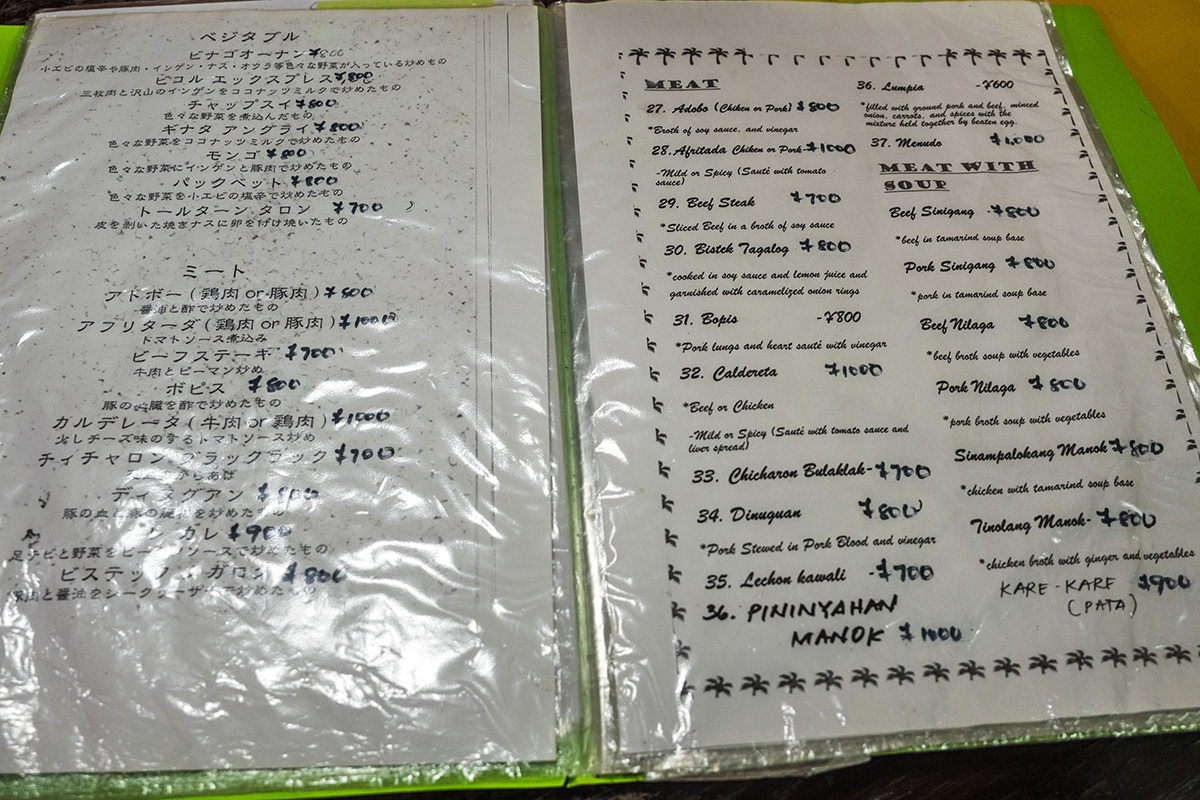 ベジタブル
ピナゴオーナン ¥800
小エビの塩辛や豚肉・インゲン・ナス・オクラ等色々な野菜が入っている炒めもの
ビコル エックスプレス ¥800
三枚肉と沢山のインゲンをココナッツミルクで炒めたもの
チャップスイ ¥800
色々な野菜を煮込んだもの
ギナタ アングライ ¥800
色々な野菜をココナッツミルクで炒めたもの
モンゴ ¥800
色々な野菜にインゲンと豚肉で炒めたもの
パックベット ¥800
色々な野菜を小エビの塩辛で炒めたもの
トールターン タロン ¥700
皮を剥いた焼きナスに卵を付け焼いたもの
ミート
アドボー(鶏肉 or 豚肉) ¥800
醤油と酢で炒めたもの
アフリターダ(鶏肉 or 豚肉) ¥1000
トマトソース煮込み
ビーフステーキ ¥700
牛肉とピーマン炒め
ボピス ¥800
豚の心臓を酢で炒めたもの
カルデレータ(牛肉 or 鶏肉) ¥1000
少しチーズ味のするトマトソース炒め
チィチャロン ブラックラック ¥700
からあげ
ディヌグアン ¥800
豚の血と豚の を炒めたもの
カレ ¥900
野菜をピーナッツソースで炒めたもの
ビステック ガロン ¥800
醤油をシークヮーサーで炒めたもの
MEAT
27. Adobo (Chiken or Pork) ¥800
*Broth of soy sauce, and vinegar
28. Afritada Chiken or Pork- ¥1000
-Mild or Spicy (Sauté with tomato
sauce)
29. Beef Steak ¥700
*Sliced Beef in a broth of soy sauce
30. Bistek Tagalog ¥800
*cooked in soy sauce and lemon juice and
garnished with caramelized onion rings
31. Bopis -¥800
*Pork lungs and heart sauté with vinegar
32. Caldereta ¥1000
*Beef or Chicken
-Mild or Spicy (Sauté with tomato sauce and
liver spread)
33. Chicharon Bulaklak- ¥700
34. Dinuguan ¥800
*Pork Stewed in Pork Blood and vinegar
35. Lechon kawali -¥700
36. PININYAHAN
MANOK ¥1000
36. Lumpia -¥600
*filled with ground pork and beef, minced
onion, carrots, and spices with the
mixture held together by beaten egg.
37. Menudo ¥1,000
MEAT WITH
SOUP
Beef Sinigang -¥800
*beef in tamarind soup base
Pork Sinigang ¥800
*pork in tamarind soup base
Beef Nilaga ¥800
*beef broth soup with vegetables
Pork Nilaga ¥800
*pork broth soup with vegetables
Sinampalokang Manok ¥800
*chicken with tamarind soup base
Tinolang Manok- ¥800
*chicken broth with ginger and vegetables
KARE-KARE ¥900
(PATA)